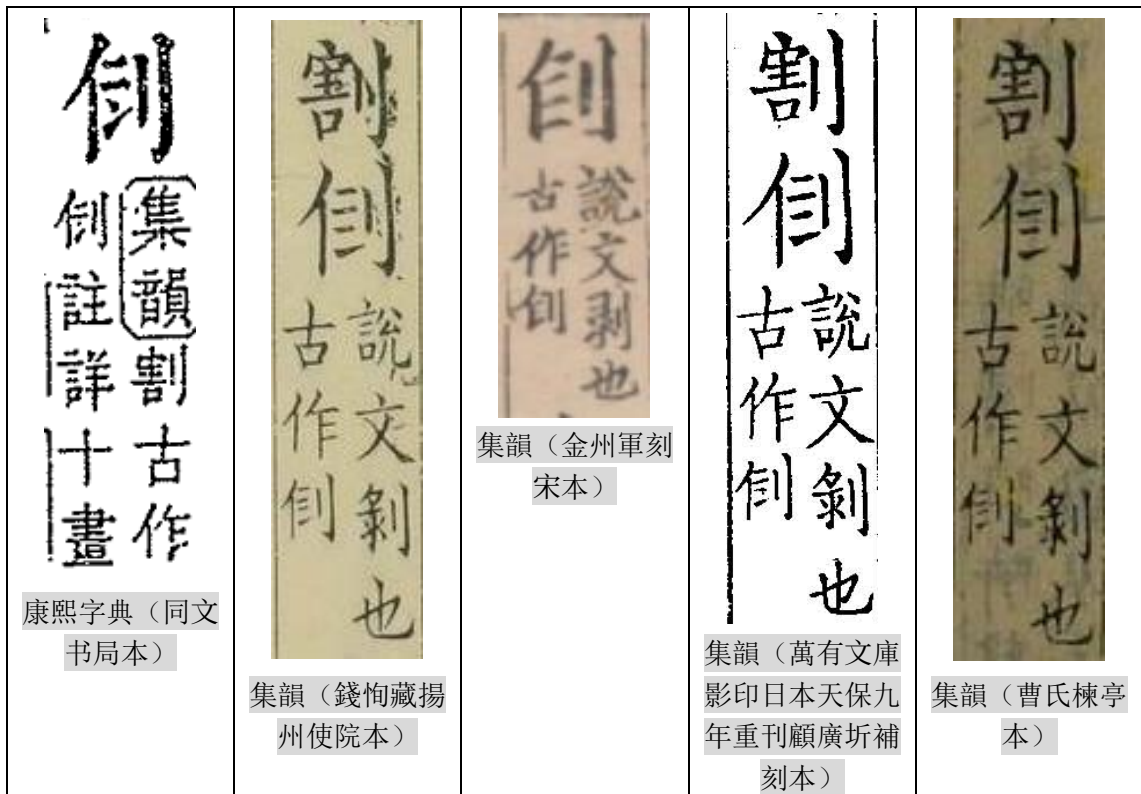 集韻割古作
註詳十畫
康熙字典（同文
书局本）
割
說文剝也
古作
集韻（錢恂藏揚
州使院本）
說文剥也
古作
集韻（金州軍刻
宋本）
割
說文剝也
古作
集韻（萬有文庫
影印日本天保九
年重刊顧廣圻補
刻本）
割
說文剝也
古作
集韻（曹氏楝亭
本）